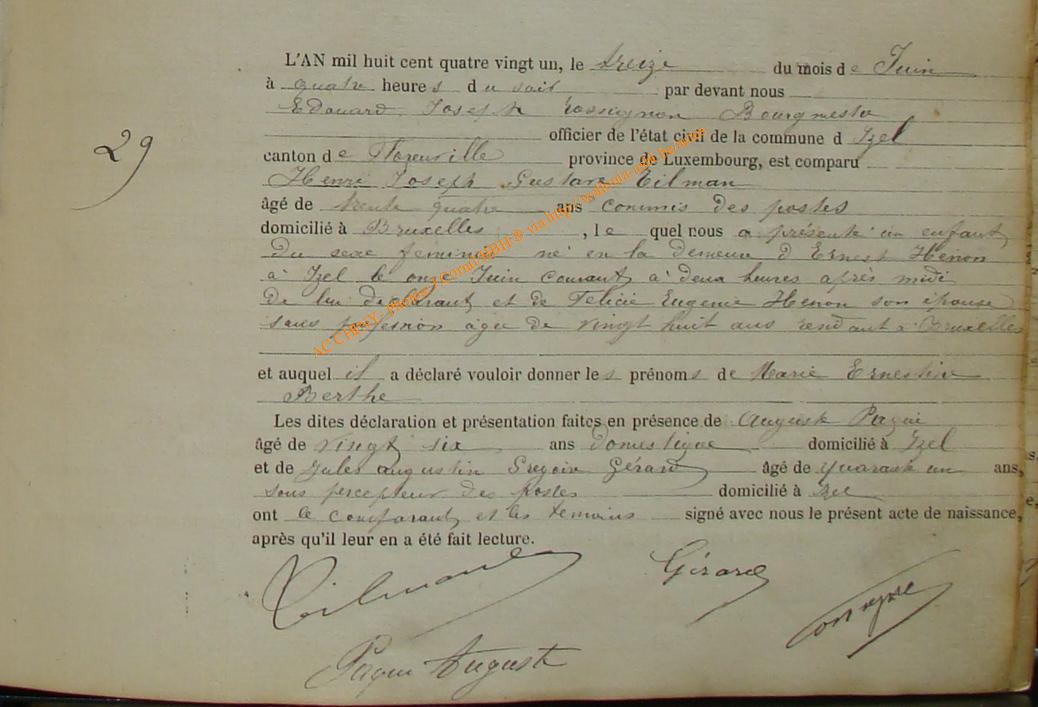 L'AN mil huit cent quatre vingt un, le treize du mois de Juin
à quatre heures du soir par devant nous
Edouard Joseph Rossignon Bourgmestre
officier de l'état civil de la commune d Izel
29
canton de Florenville province de Luxembourg, est comparu
Henri Joseph Gustave Tilman
âgé de trente quatre ans commis des postes
domicilié à Bruxelles, le quel nous a présenté un enfant
du sexe feminin né en la demeure d Ernest Henon
à Izel le onze Juin courant à deux heures après midi
de lui déclarant et de Felicie Eugenie Henon son épouse
sans profession agée de vingt huit ans à Bruxelles
et auquel il a déclaré vouloir donner les prénoms de Marie Ernestine
Berthe
Les dites déclaration et présentation faites en présence de Auguste
âgé de vingt six ans domestique domicilié à Izel
et de Jules Augustin Gregoire Gérard âgé de quarante un ans,
sous percepteur des Postes domicilié à Izel
ont le comparant et les temoins signé avec nous le présent acte de naissance,
après qu'il leur en a été fait lecture.
Gérard
Auguste